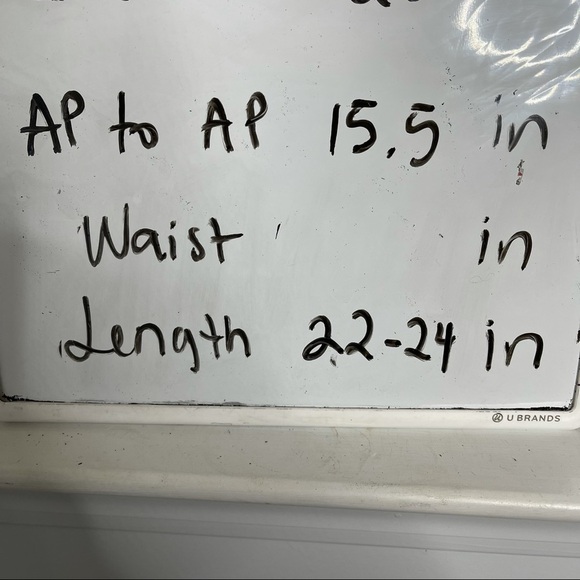 AP to AP 15.5 in
Waist in
Length 22-24 in
U BRANDS